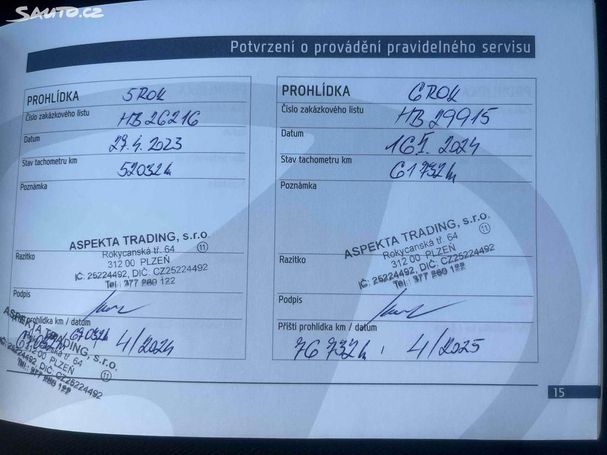 SAUTO.CZ
Potvrzení o provádění pravidelného servisu
PROHLÍDKA 5 ROK
Číslo zakázkového listu HB 26216
Datum 27.4.2023
Stav tachometru km 52032 km
Poznámka
Razítko
ASPEKTA TRADING, s.r.o.
Rokycanská tř. 64
312 00 PLZEŇ
11
IČ: 25224492, DIČ: CZ25224492
Tel.: 377 260 122
Podpis
prohlídka km / datum
67032 4/2024
ASPEKTA TRADING, s.r.o.
Rokycanská tř. 64
312 00 PLZEŇ
11
IČ: 25224492, DIČ: CZ25224492
Tel.: 377 260 122
PROHLÍDKA 6 ROK
Číslo zakázkového listu HB 29915
Datum 2024
Stav tachometru km 61732 km
Poznámka
Razítko
ASPEKTA TRADING, s.r.o.
Rokycanská tř. 64
312 00 PLZEŇ
11
IČ: 25224492, DIČ: CZ25224492
Tel.: 377 260 122
Podpis
Příští prohlídka km / datum
76 732 km 4/2025
15